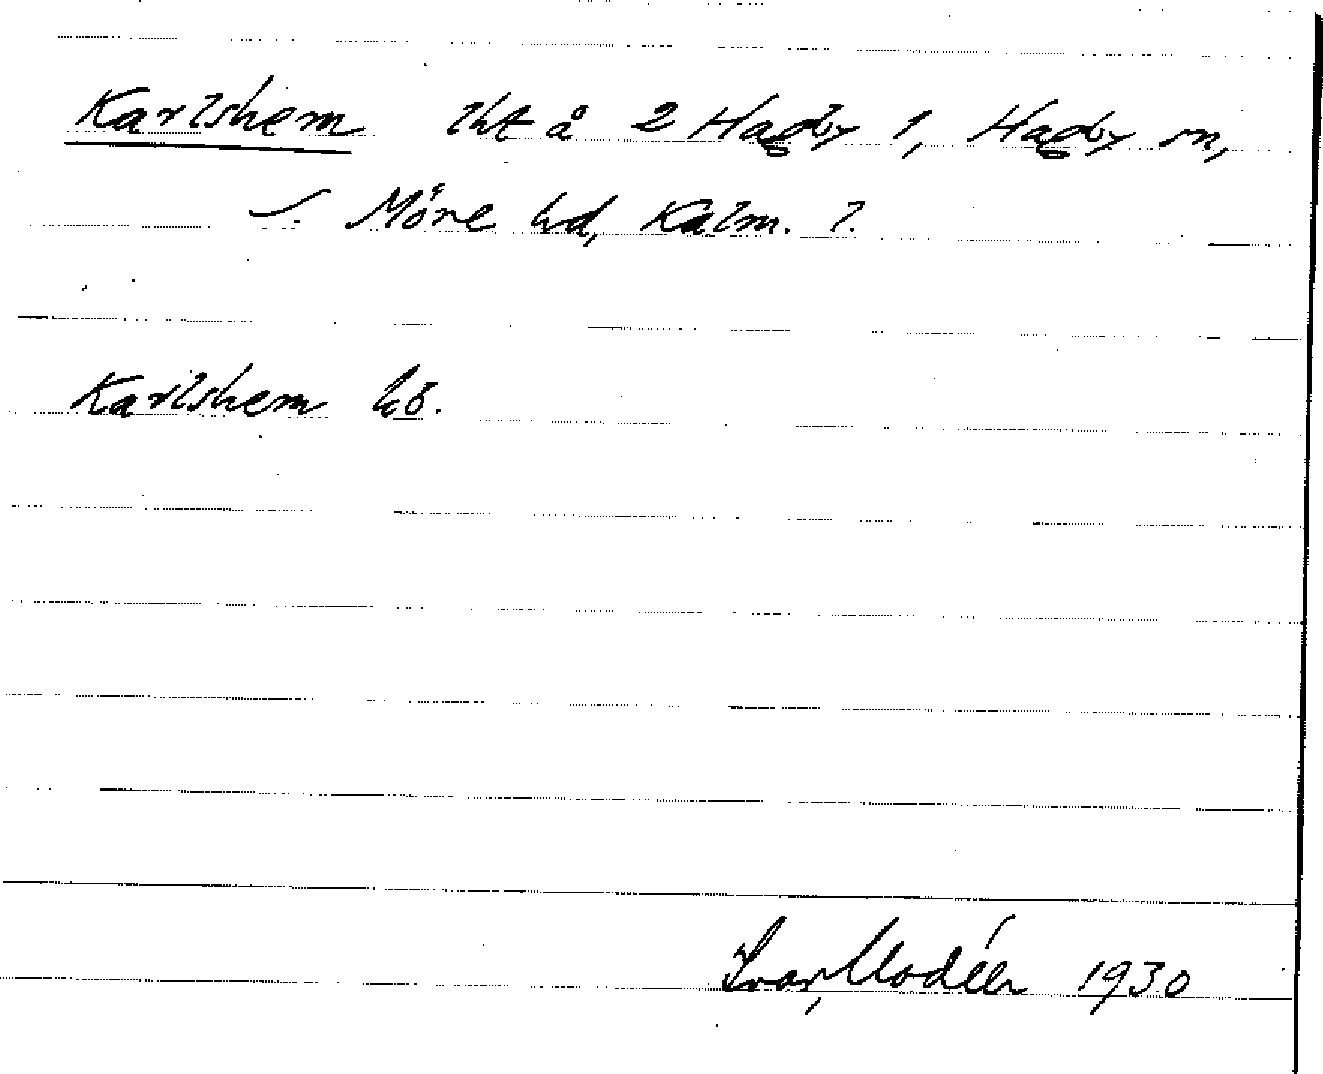 Karlshem lht å 2 Hagby 1, Hagby sn,
S. Möre hd, Kalm. l.
Karlshem kb.
Ivar Modéer 1930